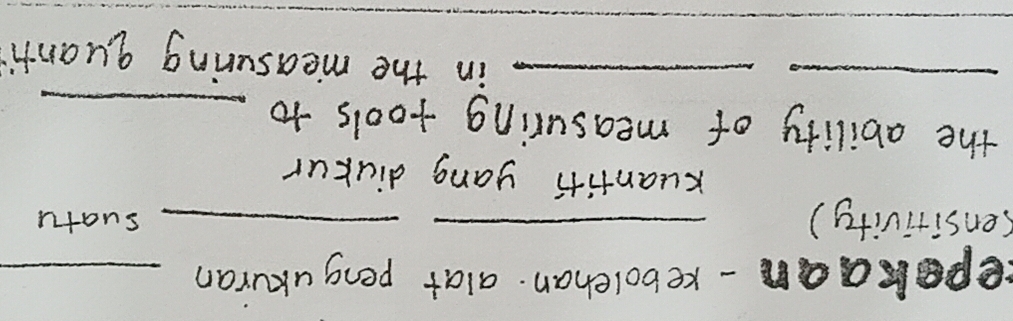 kepekaan - kebolehan alat pengukuran ________
sensitivity) ________ ________ suatu
kuantiti yang diukur
the ability of measuring tools to ________
________ ________ in the measuring quanti